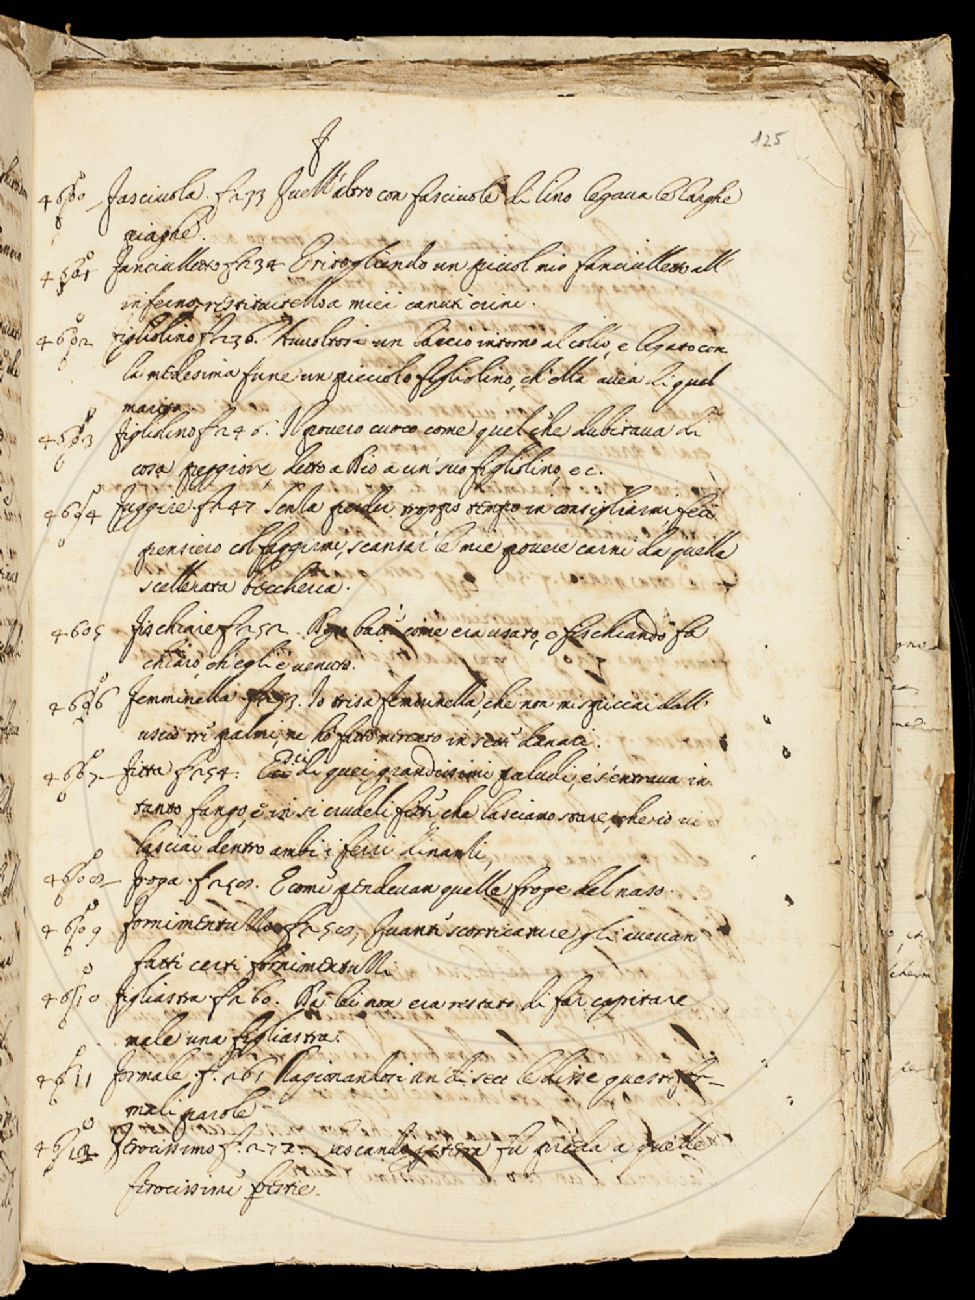 F
125
4600 Fasciuola. f. 233 Quell'altro con fasciuole di lino legaua le larghe
piaghe.
4601 Fanciulletto f. 234 E ritogliendo un piccol mio fanciulletto all
inferno, restituitello a miei canuti crini.
4602 figliolino f. 236. Auuoltosi un laccio intorno al collo, e legato con
la medesima fune un picciolo figliolino, ch'ella auea di quel
marito,
4603 figliolino f. 246. Il pouero cuoco come quel che dubitaua di
cosa peggiore, detto a Dio a un suo figliolino, ec.
4604 Fuggire f. 247 Senza perder troppo tempo in consigliarmi, feci
pensiero col fuggirmi, scansar le mie pouere carni da quella
scellerata beccheria.
4605 fischiare f. 252. come era usato, o fischiando fa
chiaro, ch'egli è uenuto.
4606 femminella f. 253. Io trista femminella, che non mi spiccai dall'
uscio tre palmi, ne ho fatto mercato in sei danari.
4607 fitta f. 254. di quei grandissimi paludi, e s'entraua in
tanto fango, e in si crudeli fitte che lasciano stare, che io ui
lasciai dentro ambi i ferri dinanzi,
4608 froga. f. 258. E come pendeuan quelle froge del naso.
4609 fornimentuzzo f. 258, Quanti scorticature gli aueuan
fatti certi fornimentuzzi
4610 figliastra f. 260. Da lui non era restato di far capitare
male una figliastra.
4611 formale f. 261 Ragionandosi un di seco le disse queste for-
mali parole
4612 ferocissimo f. 277. fu preda a quelle
ferocissime bestie.